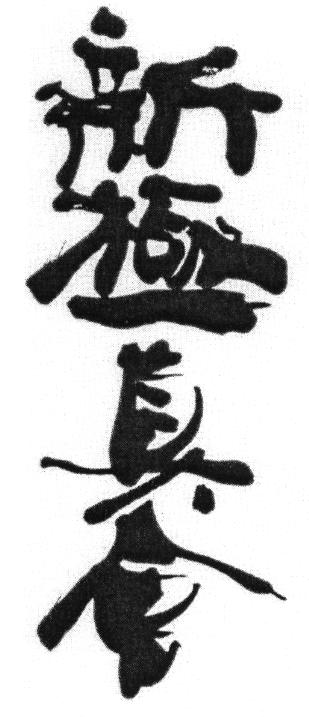 新極真会